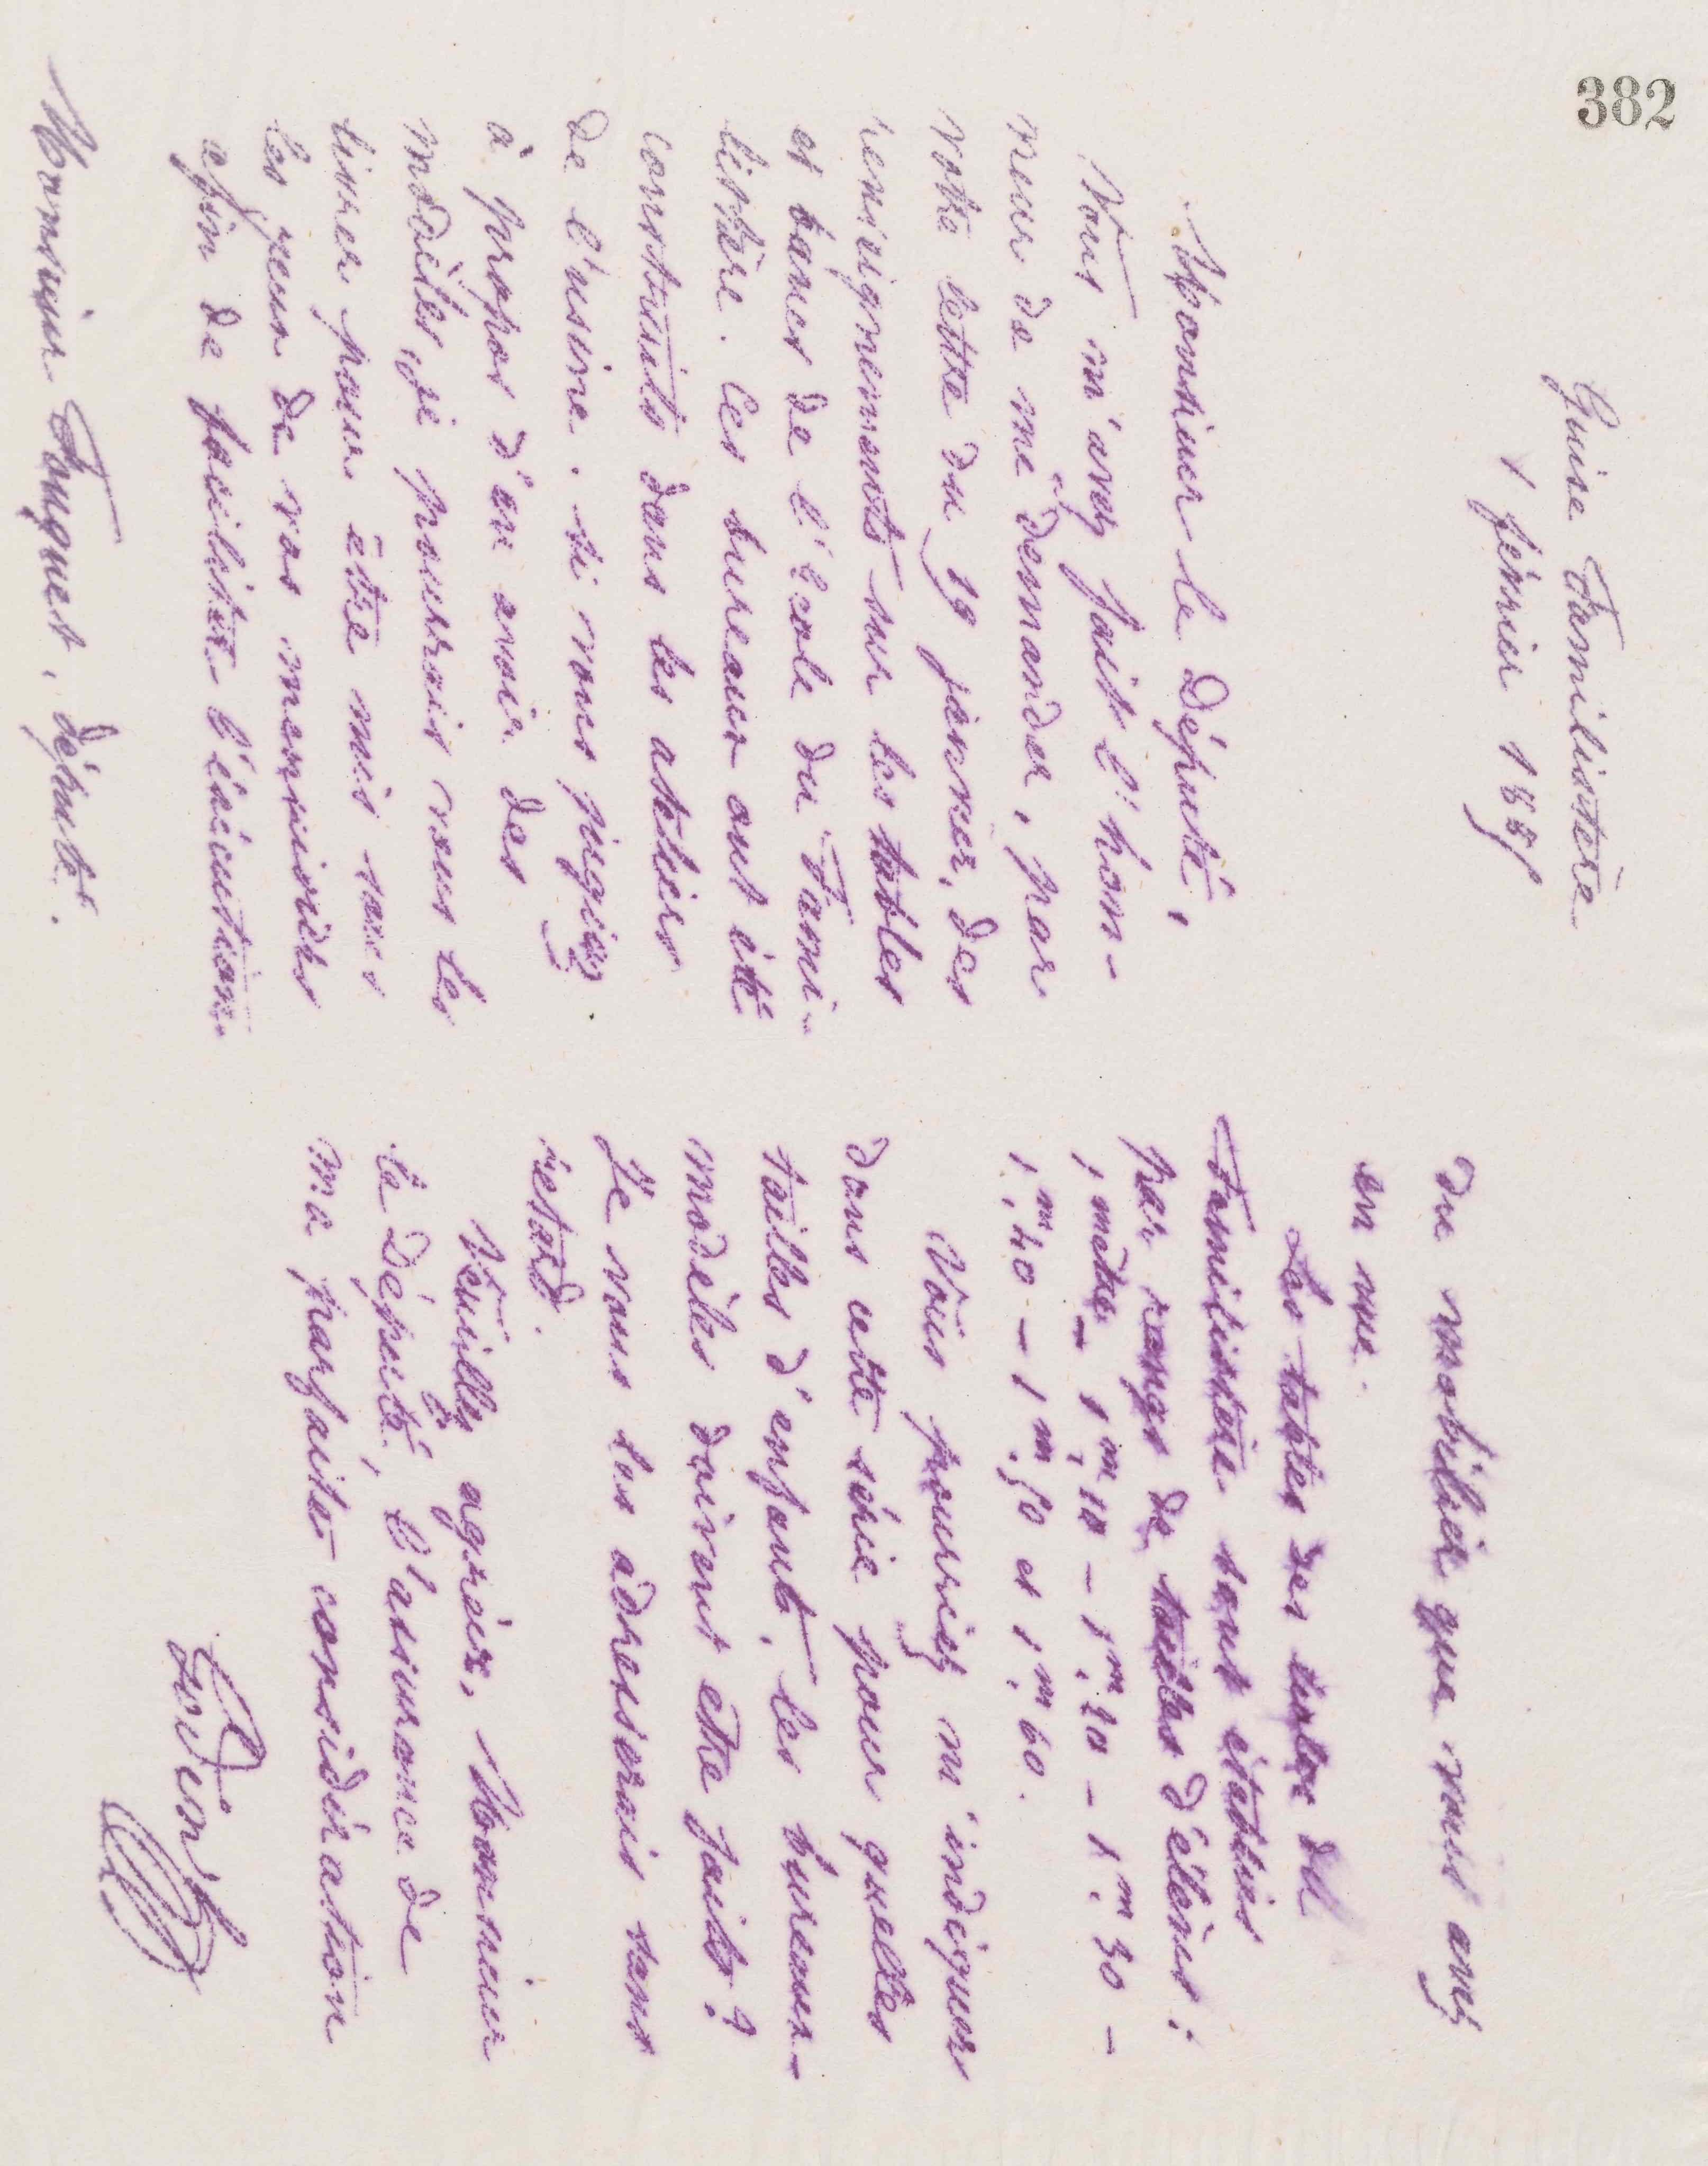 382
Guise Familistère
1 février 1885
Monsieur le Député,
Vous m'avez fait l'hon-
neur de me demander, par
votre lettre du 19 janvier, des
renseignements sur les tables
et bancs de l'école du Fami-
listère. Ces bureaux ont été
construits dans les ateliers
de l'usine. Si vous jugiez
à propos d'en avoir des
modèles, je pourrais vous les
livrer pour être mis sous
les yeux de vos menuisiers
afin de faciliter l'exécution
Monsieur Fouquet, député.
du mobilier que vous avez
en vue.
Les tables des écoles du
Familistère sont établies
par rangs de tailles d'élèves :
1 mètre – 1,m10 – 1,m20 – 1,m30 –
1,m40 – 1,m50 et 1,m60.
Vous pourriez m'indiquer
dans cette série pour quelles
tailles d'enfant, les bureaux-
modèles doivent être faits ?
Je vous les adresserais sans
retard.
Veuillez agréer, Monsieur
le Député, l'assurance de
ma parfaite considération
Godin